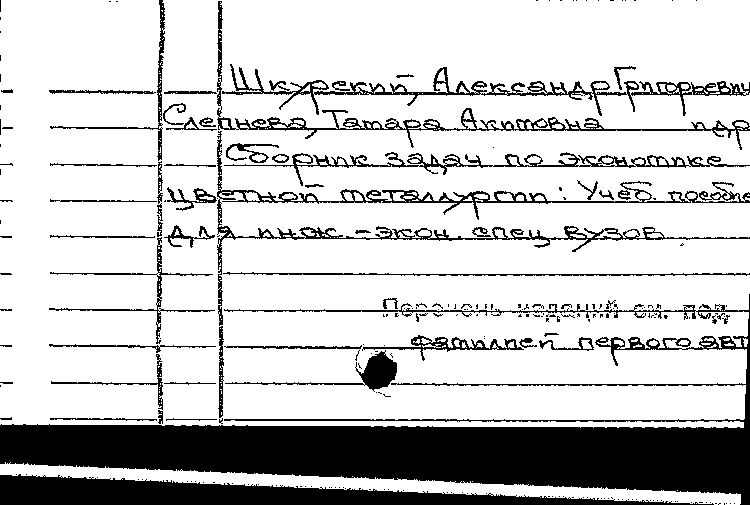 Шкурский, Александр Григорьевич
Слепнева, Тамара Акимовна и др
Сборник задач по экономике
цветной металлургии: Учеб. пособие
для инж.-экон. спец. вузов.
Перечень изданий см. под
фамилией первого авт